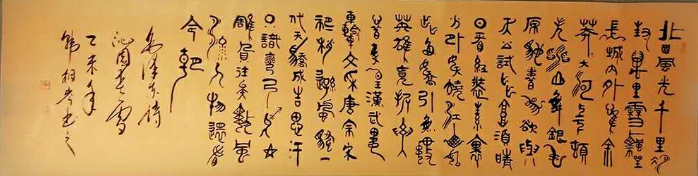 北國風光千里冰
封萬里雪飄望
長城內外惟余
莽莽大河上下頓
失滔滔山舞銀蛇
原馳蠟象欲與天
公試比高須晴
日看紅裝素裹
分外妖嬈江山如
此多嬌引無數
英雄競折腰
惜秦皇漢武略
輸文采唐宗宋
祖稍遜風騷一
代天驕成吉思汗
只識彎弓射大
雕俱往矣數風
流人物還看
今朝
毛澤東詩
沁園春雪
乙未年
書之